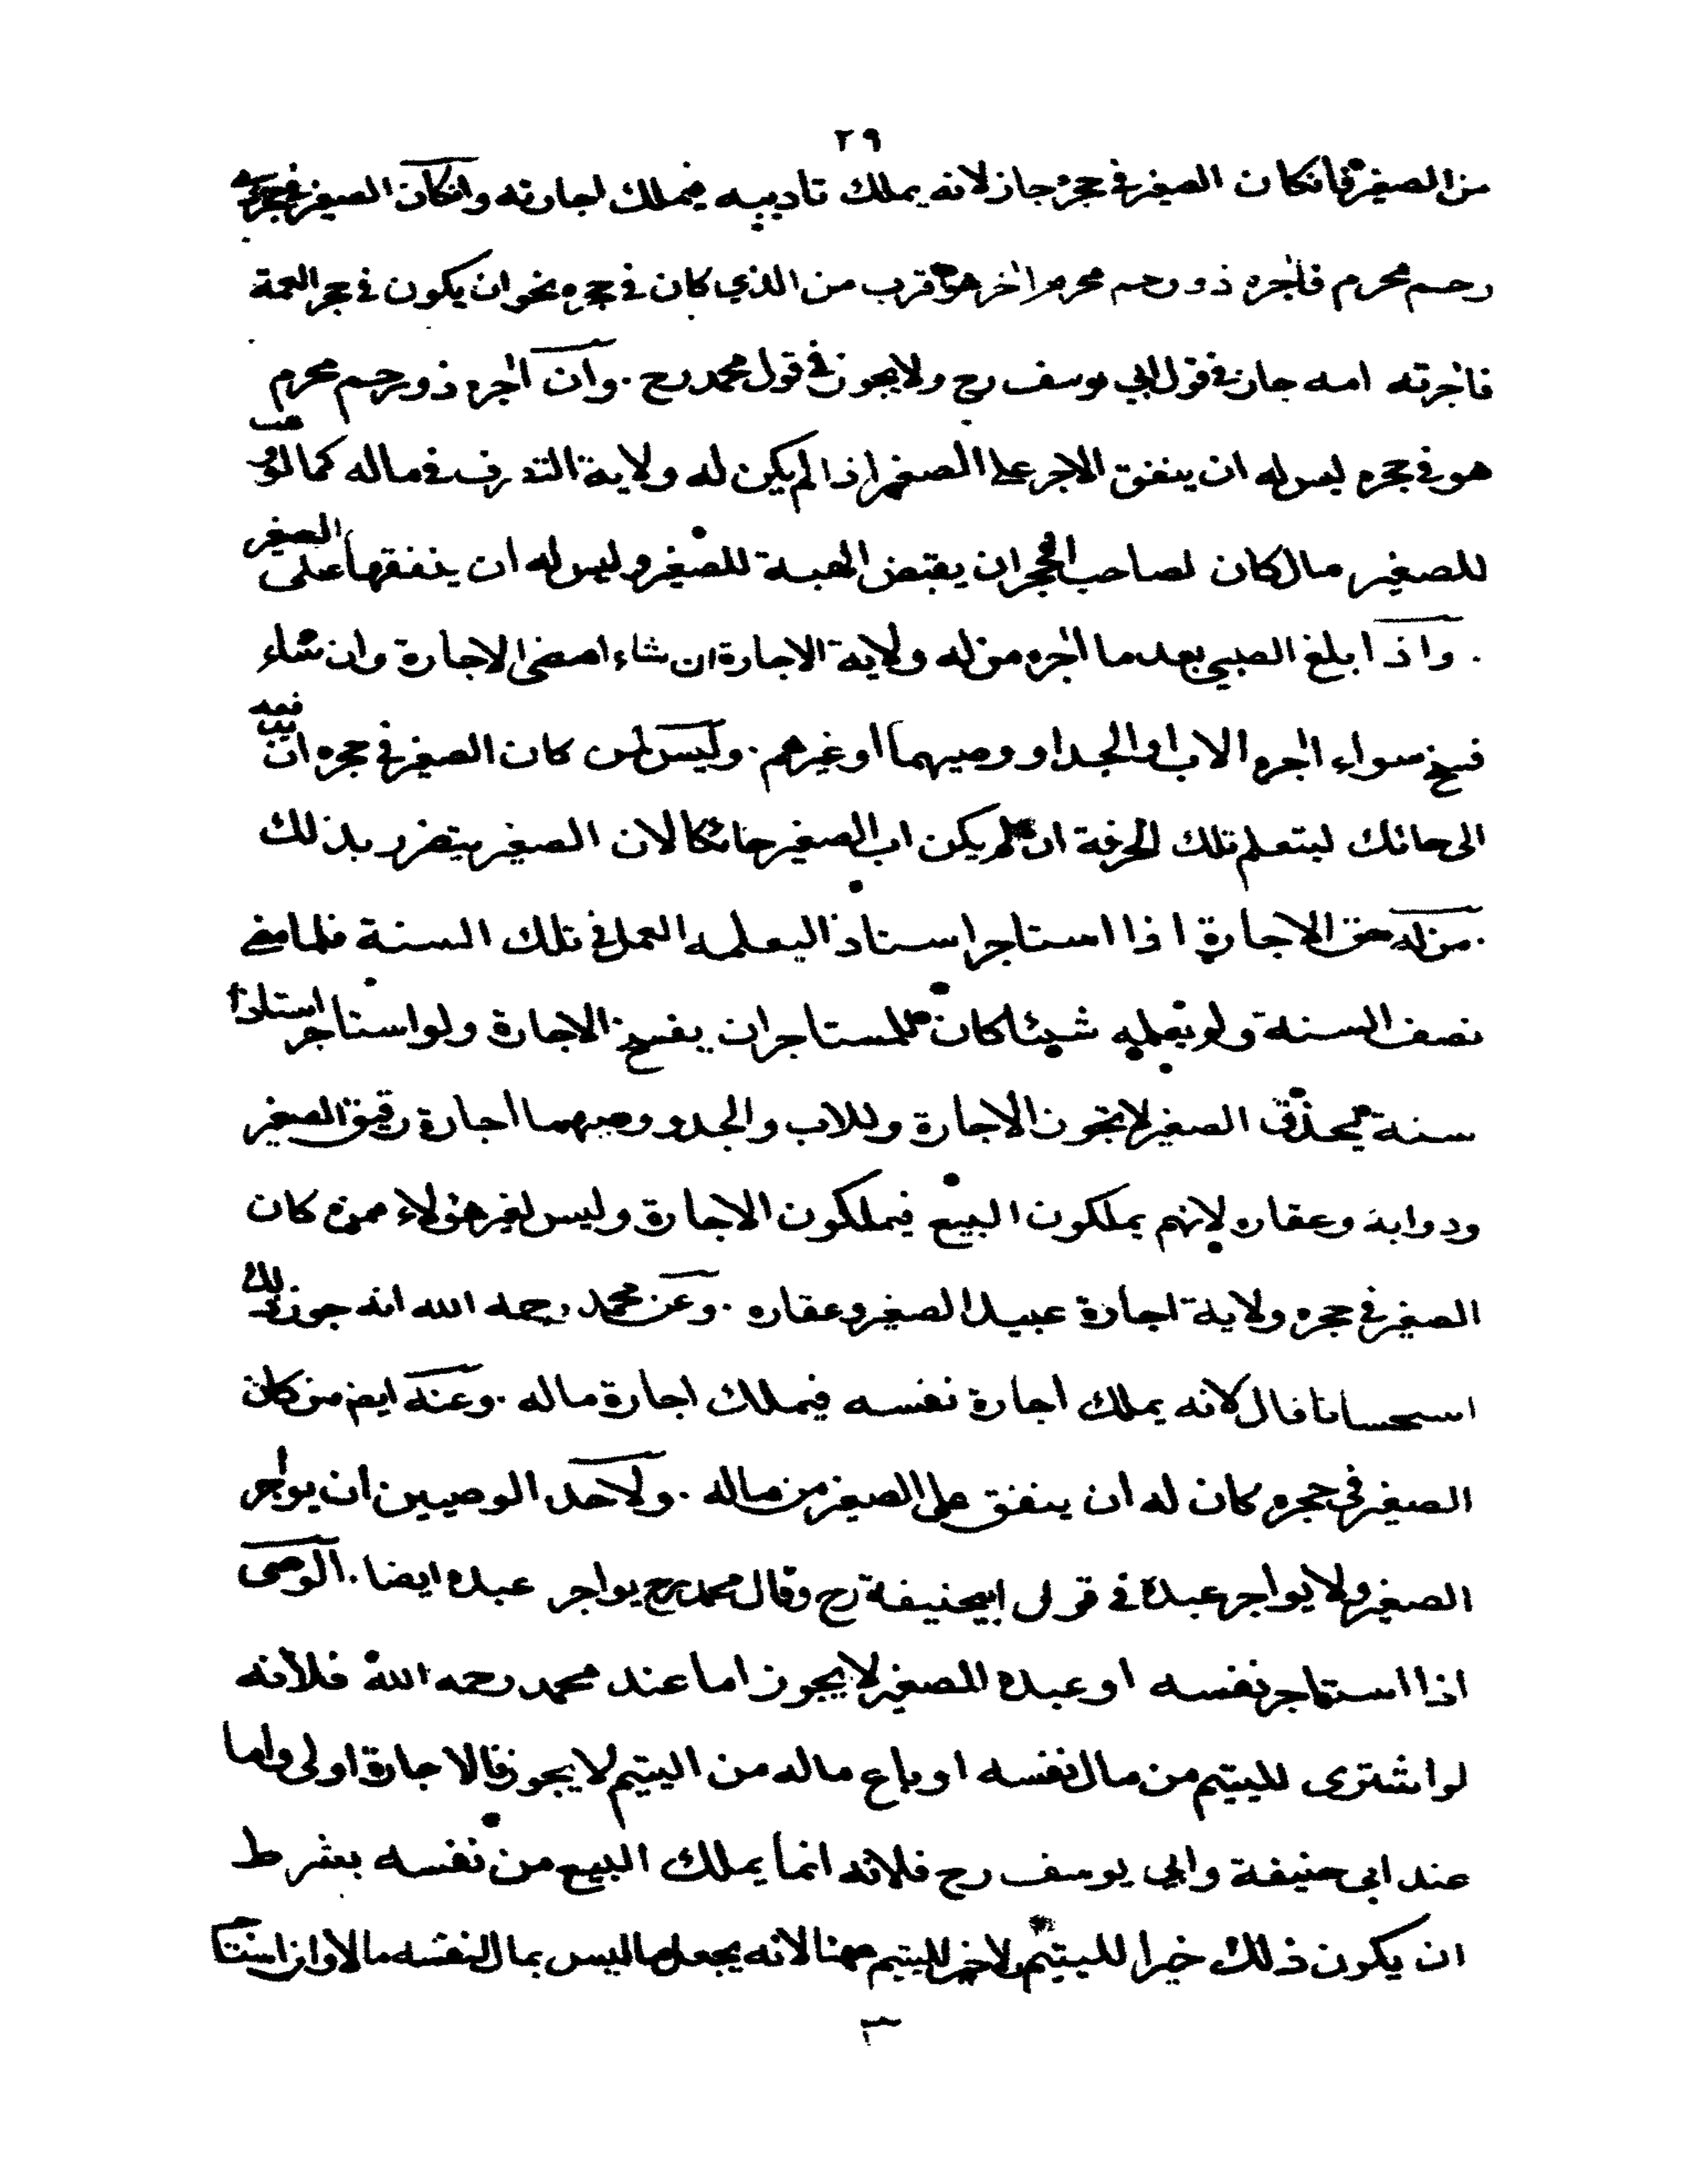 ٢٩
من الصغير فانكان الصغير في حجره جاز لانه يملك تاديبه فيملك اجارته وانكان الصغير في حجر ذي
رحم محرم فآجره ذو رحم محرم اخر هو اقرب من الذي كان في حجره نحو ان يكون في حجر العمة
فآجرته امه جاز في قول ابي يوسف رح ولا يجوز في قول محمد رح . وان آجره ذو رحم محرم
هو في حجره ليس له ان ينفق الاجر على الصغير اذا لم يكن له ولاية التصرف في ماله كما لو وهب
للصغير مال كان لصاحب الحجر ان يقبض الهبة للصغير وليس له ان ينفقها على الصغير
. واذا بلغ الصبي بعد ما آجره من له ولاية الاجارة ان شاء امضى الاجارة وان شاء
فسخ سواء آجره الاب او الجد او وصيهما او غيرهم . وليس لمن كان الصغير في حجره ان
الى حائك ليتعلم تلك الحرفة ان لم يكن اب الصغير حائكا لان الصغير يتضرر بذلك
. من له حق الاجارة اذا استاجر استاذا ليعلمه العمل في تلك السنة فلما مضى
نصف السنة ولم يعلمه شيئا كان للمستاجر ان يفسخ الاجارة ولو استاجر استاذا
سنة يحذق الصغير لا تجوز الاجارة وللاب والجد ووصيهما اجارة رقيق الصغير
ودوابه وعقاره لانهم يملكون البيع فيملكون الاجارة وليس لغير هؤلاء ممن كان
الصغير في حجره ولاية اجارة عبيد الصغير وعقاره . وعن محمد رحمه الله انه جوز ذلك
استحسانا قال لانه يملك اجارة نفسه فيملك اجارة ماله . وعنه ايض من كان
الصغير في حجره كان له ان ينفق على الصغير من ماله . ولاحد الوصيين ان يواجر
الصغير ولا يواجر عبده في قول ابيحنيفة رح وقال محمد رح يواجر عبده ايضا . الوصى
اذا استاجر نفسه او عبده للصغير لا يجوز اما عند محمد رحمه الله فلانه
لو اشترى لليتيم من مال نفسه او باع ماله من اليتيم لا يجوز فالاجارة اولى واما
عند ابى حنيفة وابي يوسف رح فلانه انما يملك البيع من نفسه بشرط
ان يكون ذلك خيرا لليتيم ولا خير لليتيم ههنا لانه يجعل ما ليس بمال لنفسه مالا وان استا